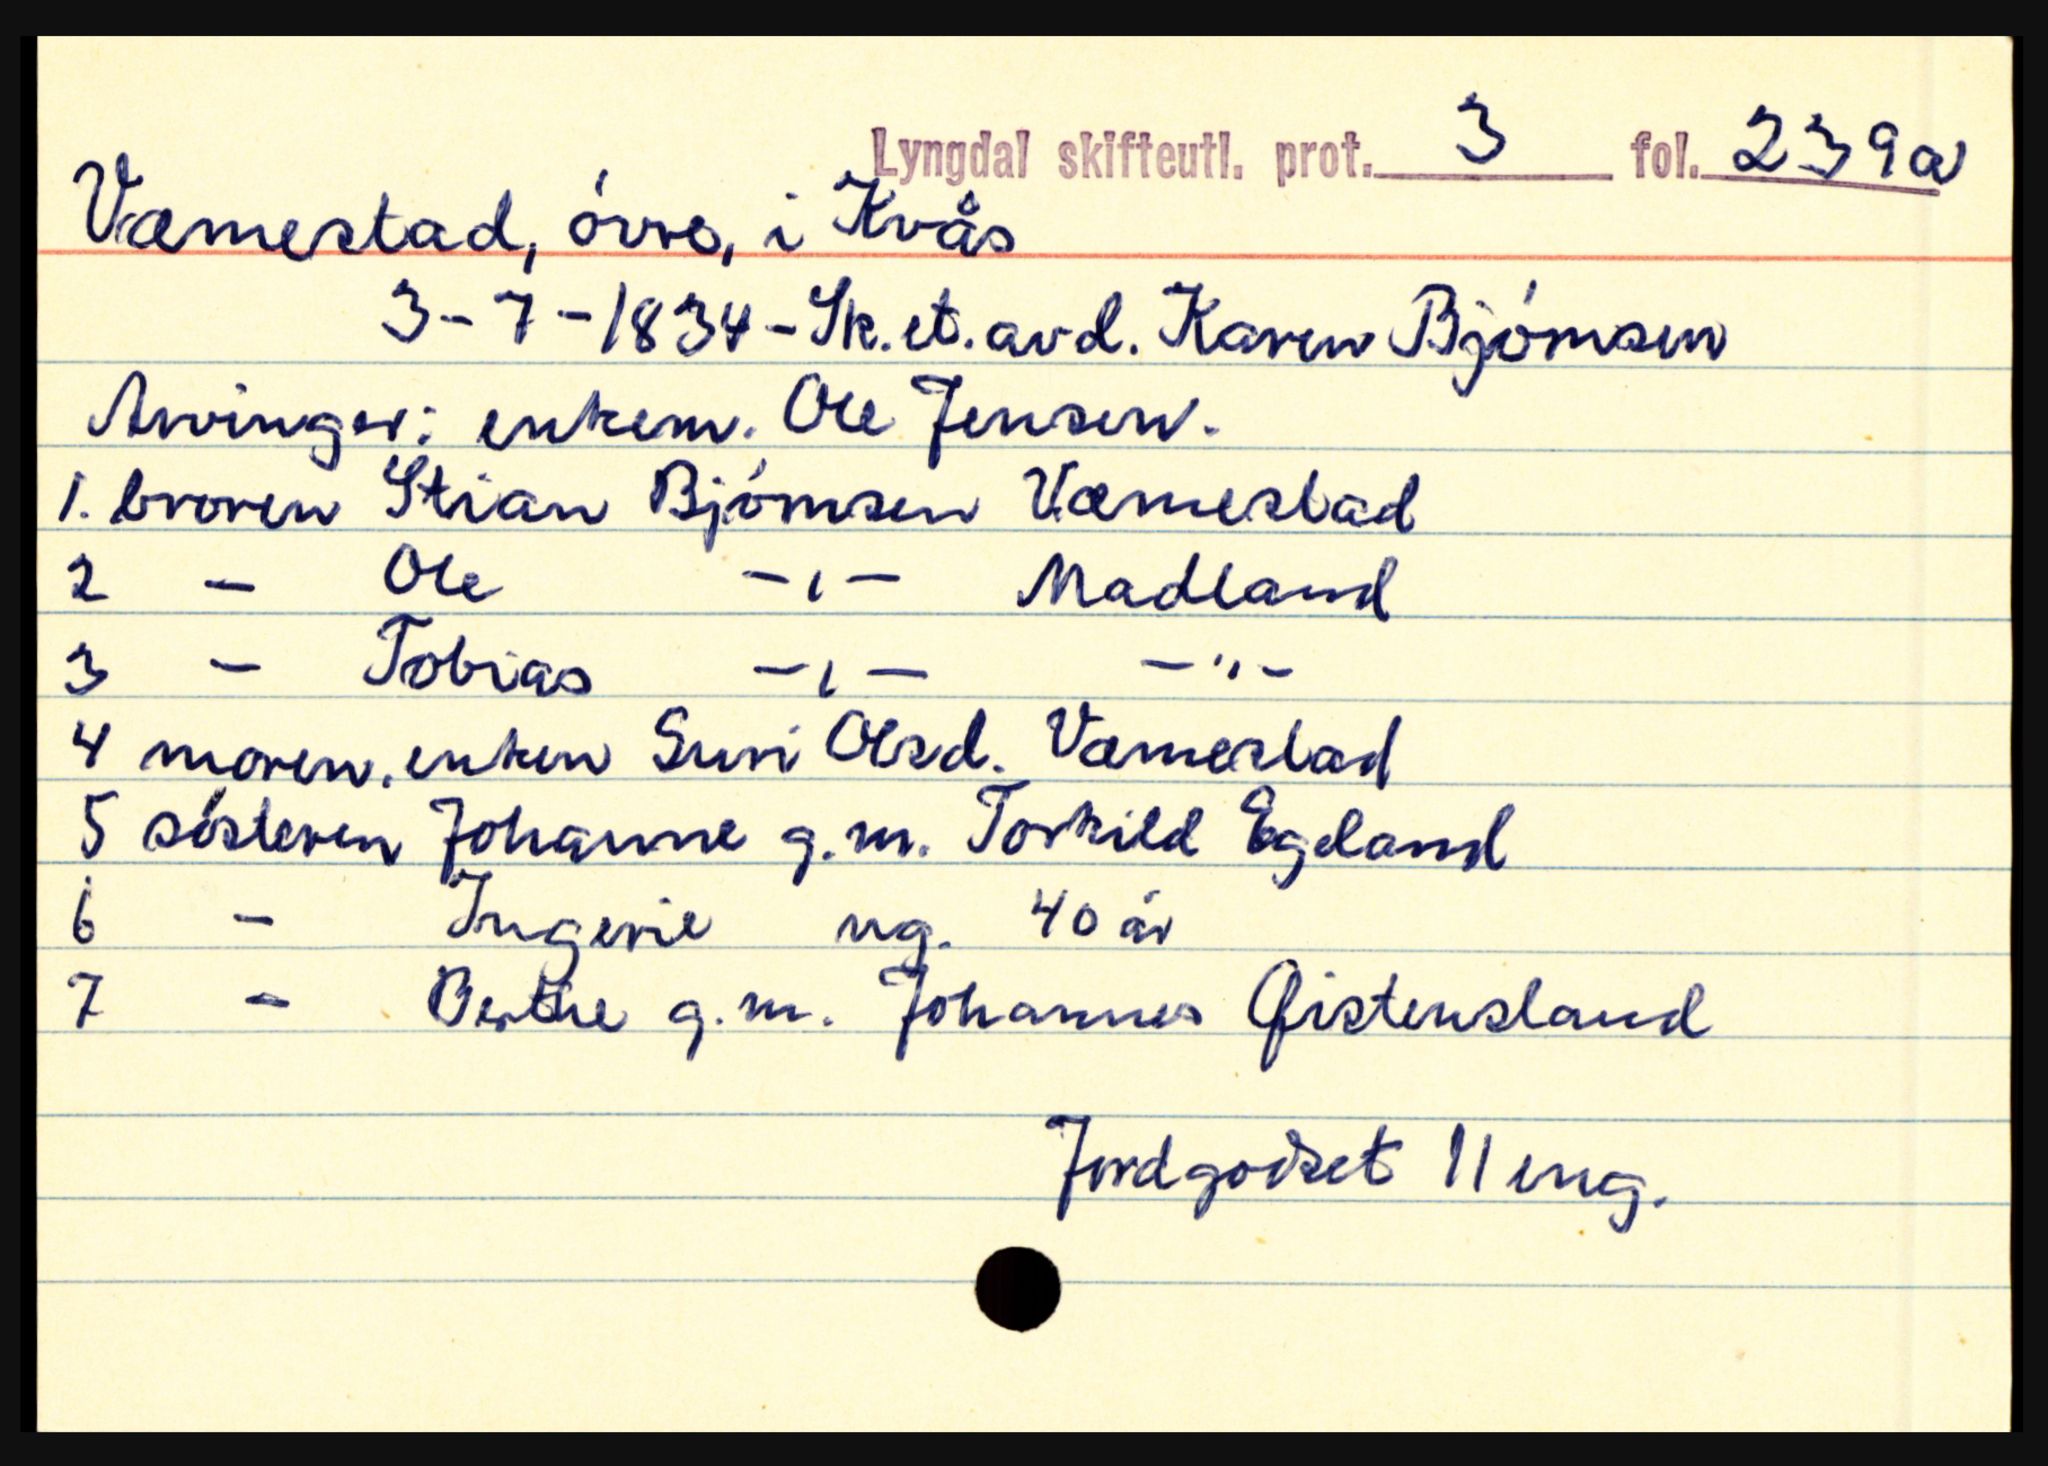 Lyngdal skifteutl. prot. 3 fol. 239a
Værnestad, óvre, i Kvås
3-7-1834 - Sk. et. avd. Karen Bjórnsen
Arvinger: enkem. Ole Jensen.
1. broren Stian Bjórnsen Værnestad
2 - Ole -,- Madland
3 - Tobias -,- -"-
4 moren, enken Suri Olsd. Værnestad
5 sósteren Johanne g.m. Torkild Egeland
6 - Ingerie ug. 40 år
7 - Berthe g.m. Johannes Øistensland
Jordgodset 11 eng.